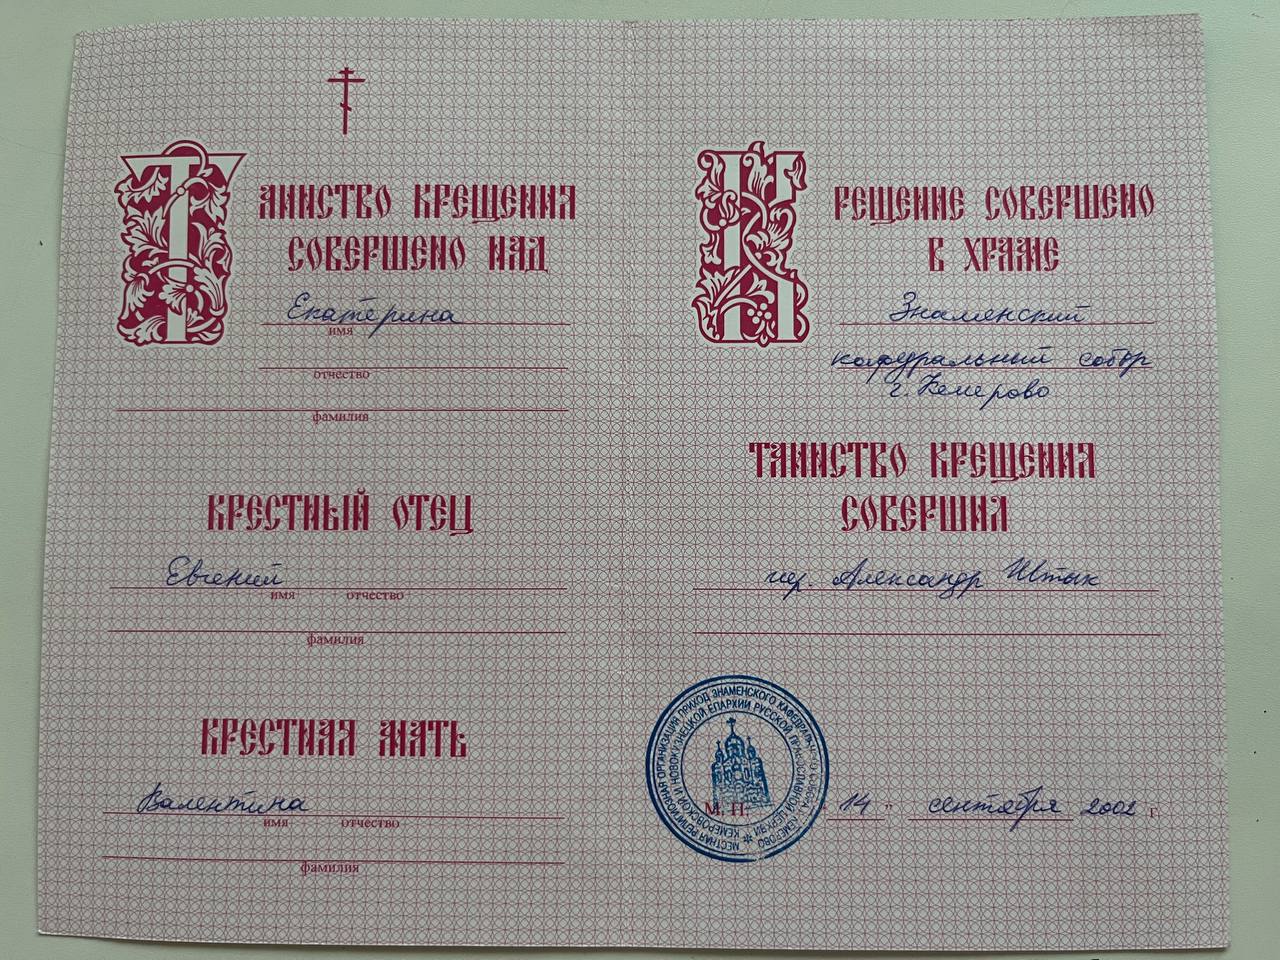 ТАИНСТВО КРЕЩЕНИЯ
СОВЕРШЕНО НАД
Екатерина
имя
отчество
фамилия
КРЕСТНЫЙ ОТЕЦ
Евгений
имя отчество
фамилия
КРЕСТНАЯ МАТЬ
Валентина
имя отчество
фамилия
КРЕЩЕНИЕ СОВЕРШЕНО
В ХРАМЕ
Знаменский
кафедральный собор
г. Кемерово
ТАИНСТВО КРЕЩЕНИЯ
СОВЕРШИЛ
иер. Александр Штык
МЕСТНАЯ РЕЛИГИОЗНАЯ ОРГАНИЗАЦИЯ ПРИХОД ЗНАМЕНСКОГО КАФЕДРАЛЬНОГО СОБОРА г. КЕМЕРОВО
КЕМЕРОВСКОЙ И НОВОКУЗНЕЦКОЙ ЕПАРХИИ РУССКОЙ ПРАВОСЛАВНОЙ ЦЕРКВИ
М. П. " 14 " сентября 2002 г.